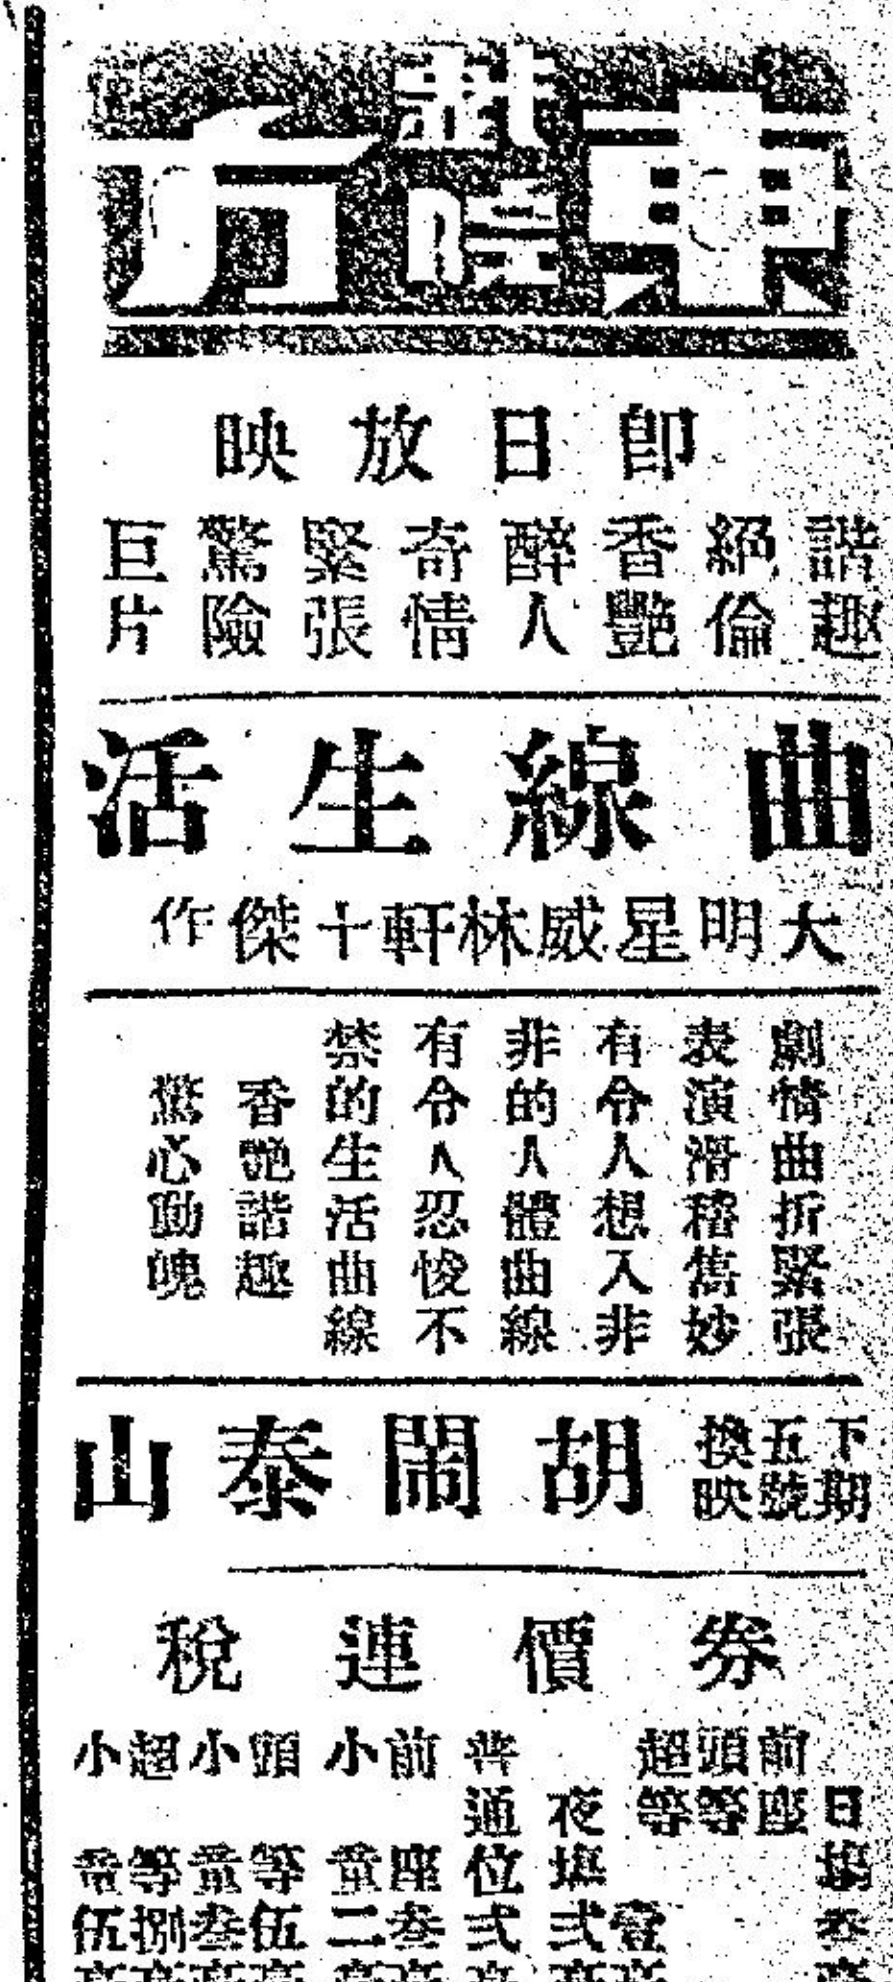 東方戲院
即日放映
諧趣
絕倫
香艷
醉人
奇情
緊張
驚險
巨片
曲線生活
大明星威林軒十傑作
劇情曲折緊張
表演滑稽雋妙
有令人想入非
非的人體曲線
有令人忍悛不
禁的生活曲線
香艷諧趣
驚心動魄
下期
五號
換映
胡鬧泰山
券價連稅
日塲叁
前座
頭等
超等壹
夜塲弍
普通位弍
前座叁
小童二
頭等伍
小童叁
超等捌
小童伍